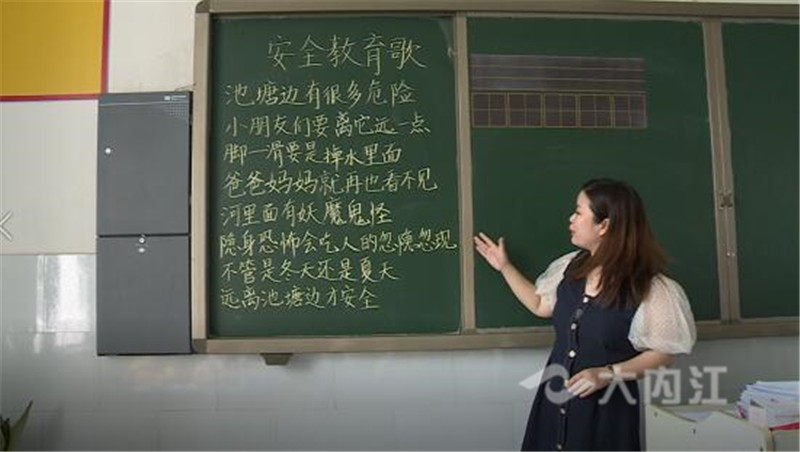 安全教育歌
池塘边有很多危险
小朋友们要离它远一点
脚一滑要是掉水里面
爸爸妈妈就再也看不见
河里面有妖魔鬼怪
隐身恐怖会吃人的忽隐忽现
不管是冬天还是夏天
远离池塘边才安全
大内江